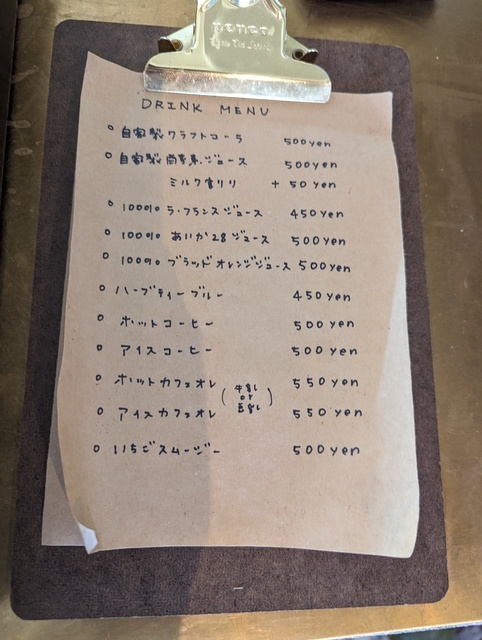 penco
DRINK MENU
○ 自家製 クラフトコーラ 500yen
○ 自家製 ジュース 500yen
ミルク割り + 50yen
○ 100% ラ・フランスジュース 450yen
○ 100% あいか28ジュース 500yen
○ 100% ブラッドオレンジジュース 500yen
○ ハーブティーブルー 450yen
○ ホットコーヒー 500yen
○ アイスコーヒー 500yen
○ ホットカフェオレ (牛乳 or 豆乳) 550yen
○ アイスカフェオレ 550yen
○ いちごスムージー 500yen